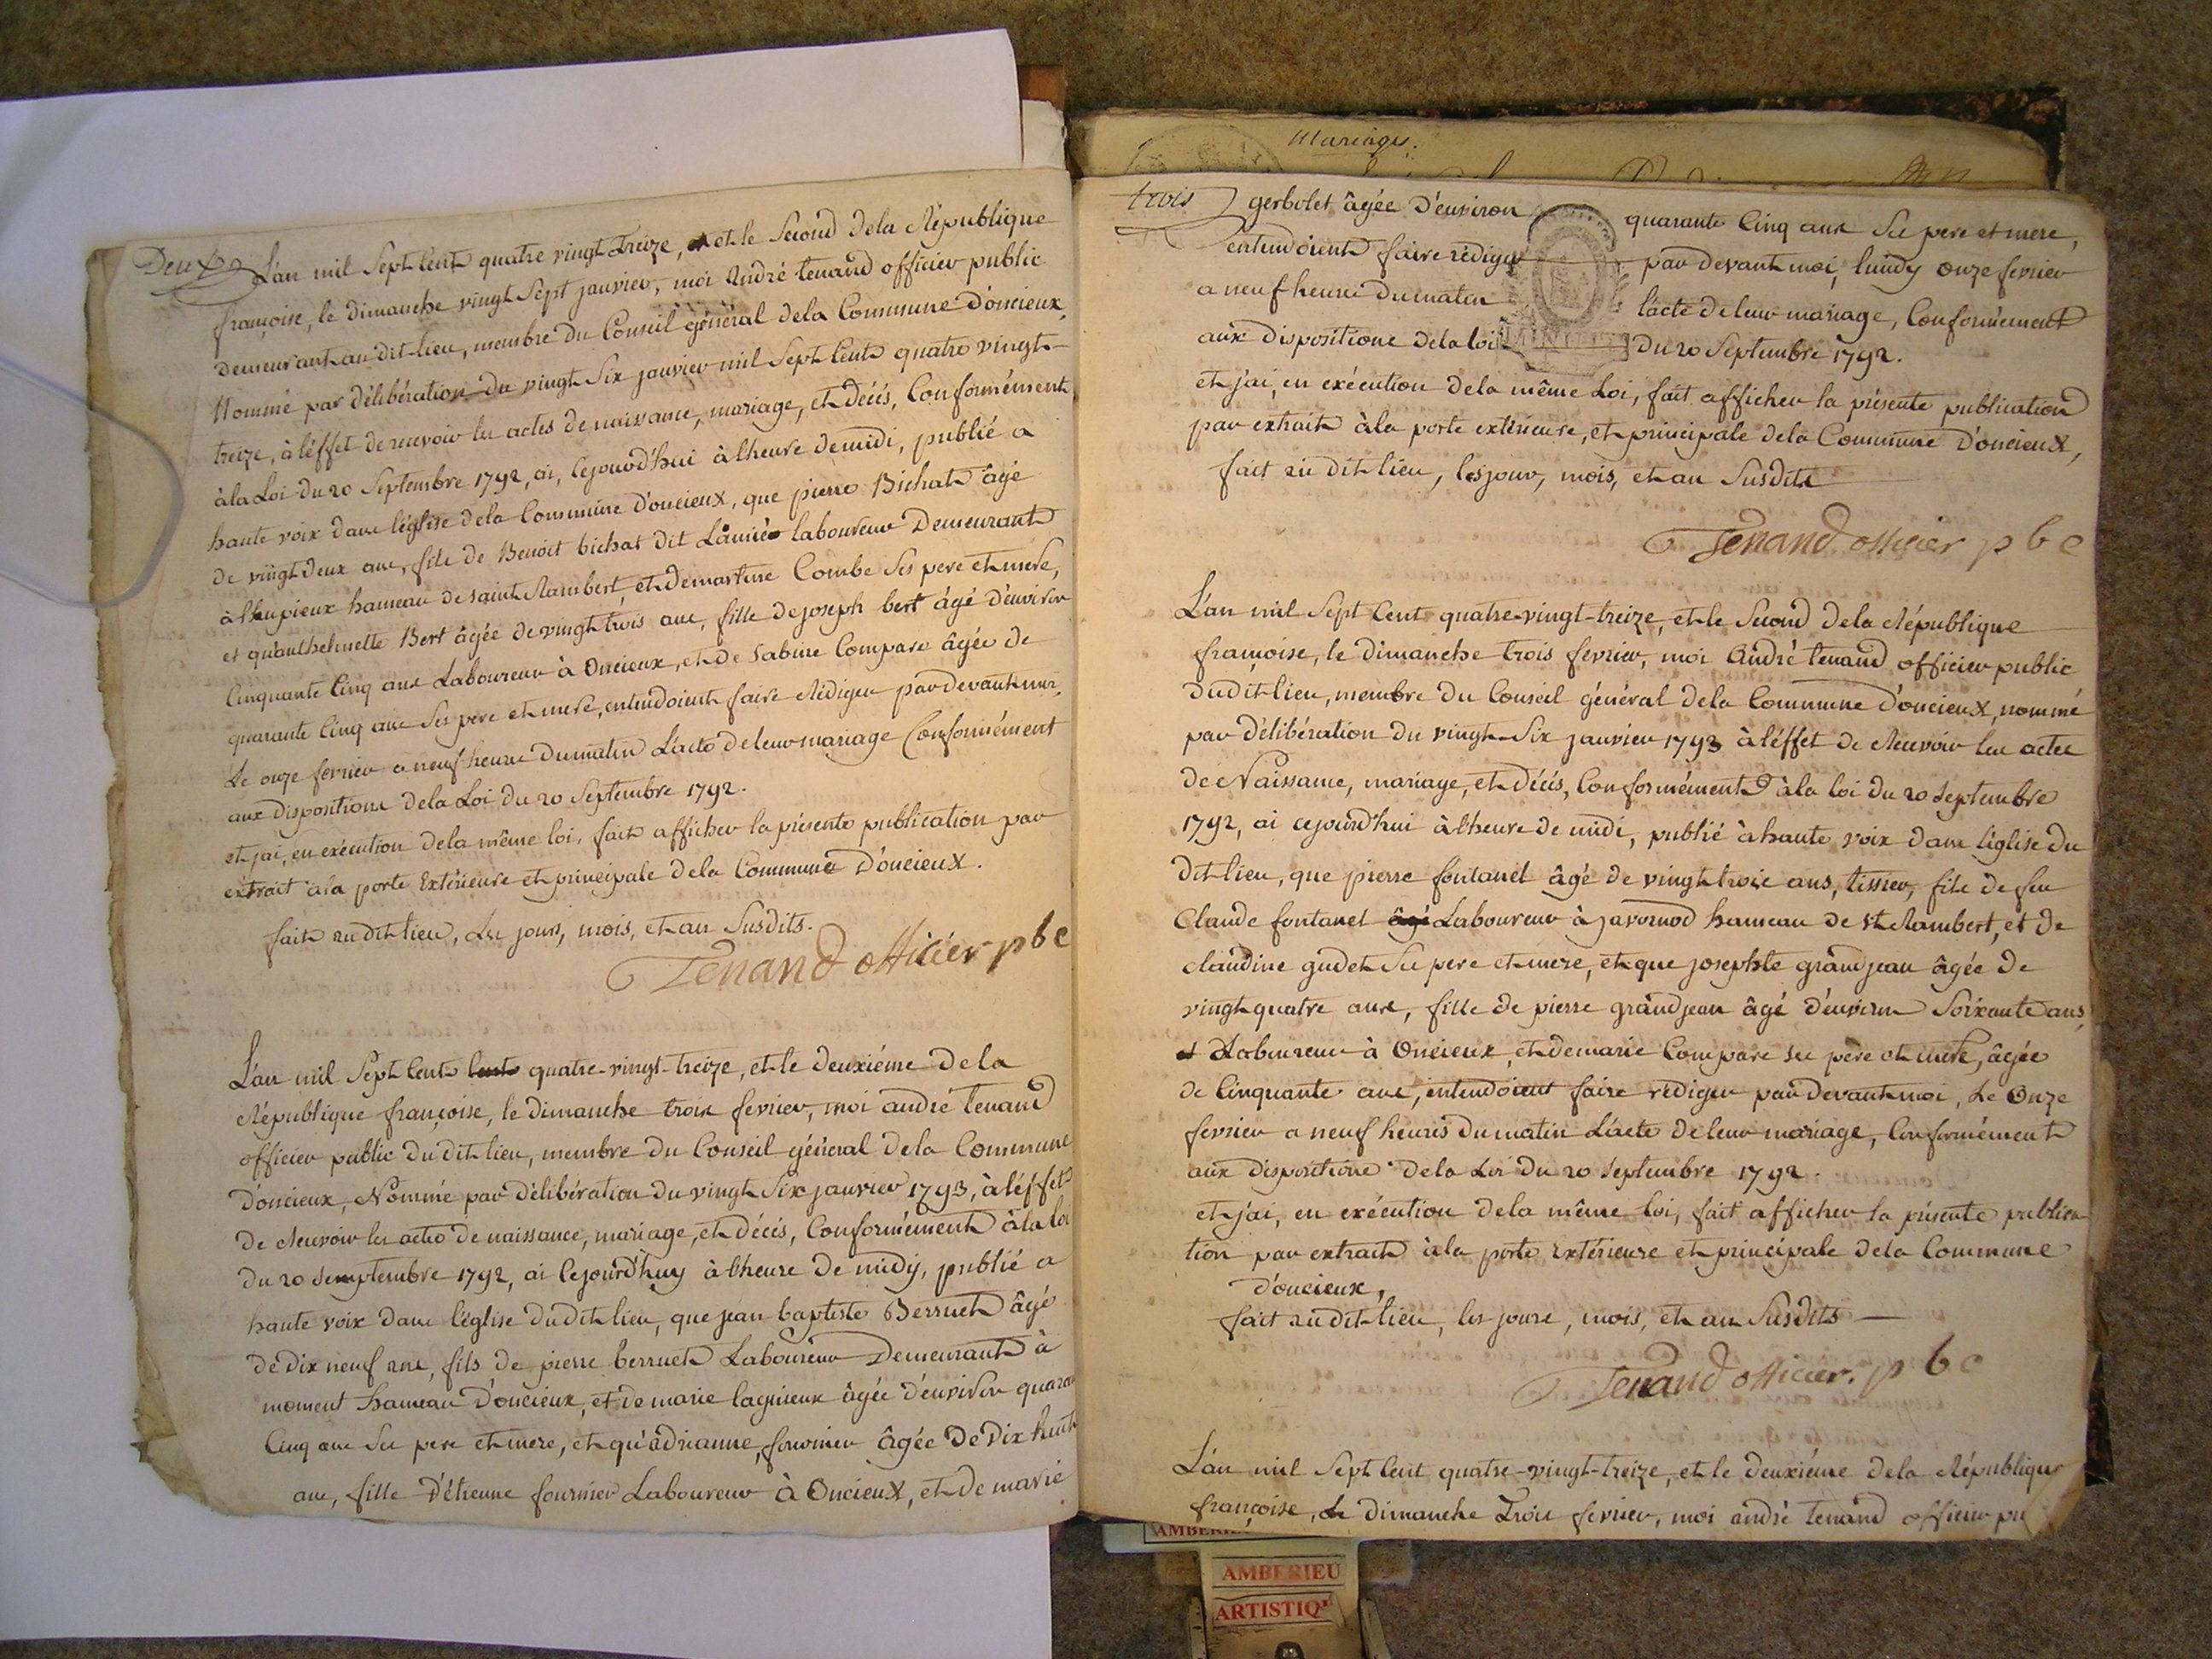 Deux L'an mil Sept Cent quatre vingt Treize, et le Second de la République
françoise, le dimanche vingt Sept janvier, moi André tenand officier public
demeurant au dit lieu, membre du Conseil général de la Commune d'oncieux,
Nommé par délibération du vingt Six janvier mil Sept Cent quatre vingt-
treize, à l'éffet de recevoir les actes de naissance, mariage, et décés, Conformément
à la Loi du 20 Septembre 1792, ai, Cejourd'hui à l'heure de midi, publié a
haute voix dans l'église de la Commune d'oncieux, que pierre Bichat âgé
de vingt deux ans, fils de Benoit bichat dit L'amiéo laboureur Demeurant
à hameau de saint Rambert, et de marthe Combe Ses pere et mere,
et qu'anthelmette Bert âgée de vingt trois ans, fille de joseph bert âgé d'environ
Cinquante Cinq ans Laboureur à Oncieux, et de Sabine Compare âgée de
quarante Cinq ans Ses pere et mere, entendoient faire Rédiger par devant moi,
Le onze fevrier a neuf heures du matin L'acte de leur mariage Conformément
aux dispositions de la Loi du 20 Septembre 1792.
et j'ai, en exécution de la même loi, fait afficher la présente publication par
extrait à la porte Extérieure et principale de la Commune D'oncieux.
fait au dit lieu, Les jours, mois, et an Susdits.
Tenand officier pbc
L'an mil Sept Cent Cent quatre-vingt-treize, et le deuxiéme de la
République françoise, le dimanche trois fevrier, moi andré tenand
officier public du dit lieu, membre du Conseil général de la Commune
D'oncieux, Nommé par délibération du vingt Six janvier 1793, à l'éffet
de Recevoir les actes de naissance, mariage, et décés, Conformément à la loi
du 20 Semptembre 1792, ai Cejourd'huy à l'heure de midy, publié a
haute voix dans l'église du dit lieu, que jean baptiste Berruet âgé
de dix neuf ans, fils de pierre berruet Laboureur Demeurant à
moment hameau D'oncieux, et de marie lagnieux âgée d'environ quaran
Cinq ans Ses pere et mere, et qu'adrianne fournier âgée de Dix huit
ans, fille d'étienne fournier Laboureur à Oncieux, et de marie
Mariages.
trois gerbolet âgée d'environ quarante Cinq ans Ses pere et mere,
entendoient faire rédiger par devant moi, lundy onze fevrier
a neuf heures du matin l'acte de leur mariage, Conformément
aux dispositions de la loi du 20 Septembre 1792.
et j'ai, en exécution de la même Loi, fait afficher la présente publication
par extrait à la porte extérieure, et principale de la Commune D'oncieux,
fait au dit lieu, les jour, mois, et an Susdits
Tenand officier pbc
L'an mil Sept Cent quatre-vingt-treize, et le Second de la République
françoise, le dimanche trois fevrier, moi André tenand officier public
du dit lieu, membre du Conseil général de la Commune d'oncieux, nommé
par délibération du vingt-Six janvier 1793 à l'éffet de Recevoir les actes
de Naissance, mariage, et décés, Conformément à la loi du 20 Septembre
1792, ai cejourd'hui à l'heure de midi, publié à haute voix dans l'église du
dit lieu, que pierre fontanel âgé de vingt trois ans, tissier, fils de feu
Claude fontanel âgé Laboureur à javornod hameau de st Rambert, et de
claudine gudet Ses pere et mere, et que josephte grandjean âgée de
vingt quatre ans, fille de pierre grandjean âgé d'environ Soixante ans,
et Laboureur à Oncieux, et de marie Compare ses père et mere, âgée
de Cinquante ans, entendoient faire rédiger par devant moi, Le Onze
fevrier a neuf heures du matin L'acte de leur mariage, Conformément
aux dispositions de la Loi du 20 Septembre 1792.
et j'ai, en exécution de la même loi, fait afficher la présente publica
tion par extrait à la porte Extérieure et principale de la Commune
d'oncieux,
fait au dit lieu, les jours, mois, et an Susdits
Tenand officier. pbc
L'an mil Sept Cent quatre-vingt-treize, et le deuxiéme de la République
françoise, Le dimanche Trois fevrier, moi andré tenand officier pu
AMBERIEU
ARTISTIQ